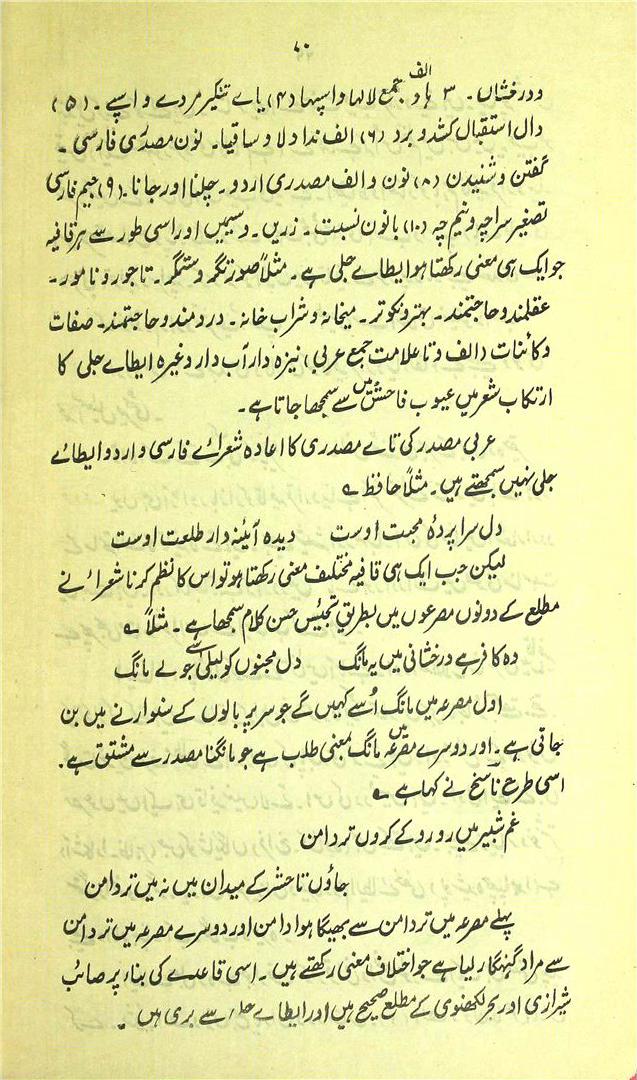 ۸۰
ودرخشاں۔ ۳ ہاو الف جمع لالہا واسپہا (۴) یاے تنکیر مردے و اسپے۔ (۵)
دال استقبال کشد و برد (۶) الف ندا دلا و ساقیا۔ نون مصدری فارسی۔
گفتن و شنیدن (۸) نون و الف مصدری اردو۔ چلنا اور جانا۔ (۹) جیم فارسی
تصغیر سراچہ و نیم چہ (۱۰) یا نون نسبت۔ زریں۔ وسیمیں اور اسی طور سے ہر قافیہ
جو ایک ہی معنی رکھتا ہو ایطاے جلی ہے۔ مثلاً صورتگر و ستمگر۔ تاجور و نامور۔
عقلمند و حاجتمند۔ بہتر و نکوتر۔ میخانہ و شراب خانہ۔ دردمند و حاجتمند۔ صفات
و کائنات (الف و تا علامت جمع عربی) نیزہ دار آب دار وغیرہ ایطاے جلی کا
ارتکاب شعر میں عیوب فاحش میں سے سمجھا جاتا ہے۔
عربی مصدر کی تاے مصدری کا اعادہ شعراے فارسی و اردو ایطاے
جلی نہیں سمجھتے ہیں۔ مثلاً حافظ ؎
دل سراپردۂ محبت اوست دیدہ آئینہ دار طلعت اوست
لیکن جب ایک ہی قافیہ مختلف معنی رکھتا ہو تو اس کا نظم کرنا شعرا نے
مطلع کے دونوں مصرعوں میں بطریق تجنیس حسن کلام سمجھا ہے۔ مثلاً ؎
وہ کافر ہے درخشانی میں یہ مانگ دل مجنوں کو لیلیٰ اسے جو لے مانگ
اول مصرعہ میں مانگ اُسے کہیں گے جو سر پر بالوں کے سنوارنے میں بن
جاتی ہے۔ اور دوسرے مصرعہ میں مانگ بمعنی طلب ہے جو مانگنا مصدر سے مشتق ہے۔
اسی طرح ناسخ نے کہا ہے ؎
غم شبیر میں رو رو کے کروں تر دامن
جاؤں تا حشر کے میدان میں نہ میں تر دامن
پہلے مصرعہ میں تر دامن سے بھیگا ہوا دامن اور دوسرے مصرعہ میں تر دامن
سے مراد گنہگار لیا ہے جو اختلاف معنی رکھتے ہیں۔ اسی قاعدے کی بناء پر صائب
شیرازی اور بحر لکھنوی کے مطلع صحیح ہیں اور ایطاے جلی سے بری ہیں۔